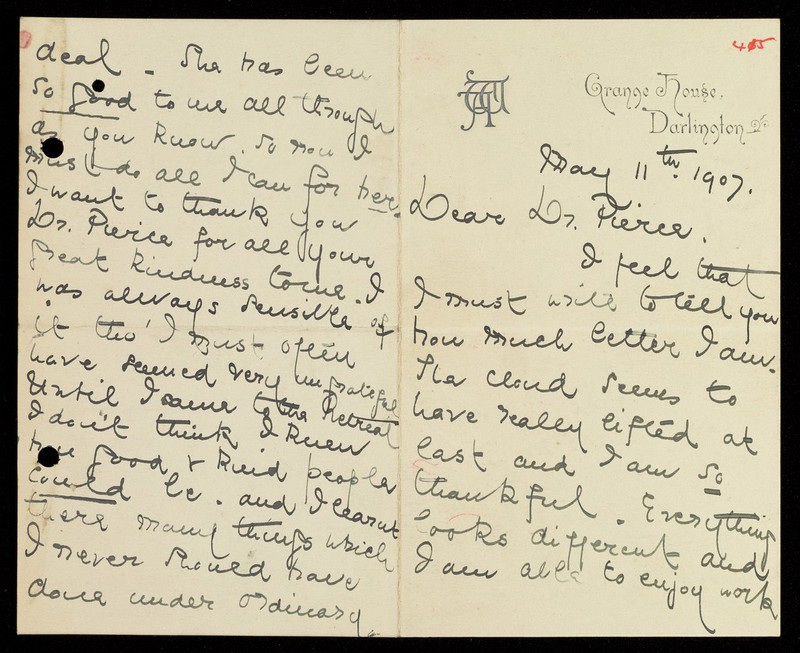 405
Grange House,
Darlington
May 11th. 1907.
Dear Dr. Pierce,
I feel that
I must write to tell you
how much better I am.
The cloud seems to
have really lifted at
last and I am so
thankful. Everything
looks different and
I am able to enjoy work
deal - She has been
so good to me all through
as you know. So now I
must do all I can for her.
I want to thank you
Dr. Pierce for all your
great kindness to me. I
was always sensible of
it tho' I must often
have seemed very ungrateful
Until I came to the Retreat
I don't think I knew
how good & kind people
could be. and I learnt
there many things which
I never should have
done under ordinary